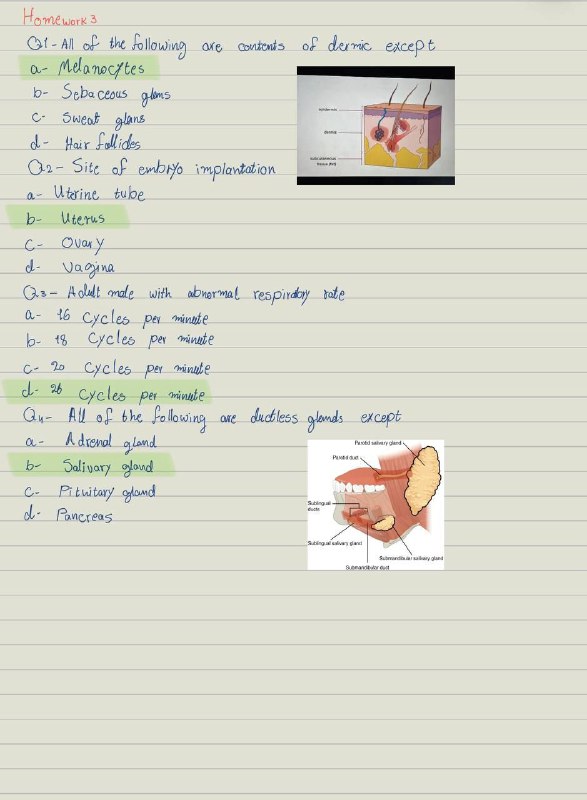 Homework 3
Q1- All of the following are contents of dermic except
a- Melanocytes
b- Sebaceous glans
c- Sweat glans
d- Hair follicles
epidermis
dermis
subcutaneous
tissue (fat)
Q2- Site of embryo implantation
a- Uterine tube
b- Uterus
c- Ovary
d- Vagina
Q3- Adult male with abnormal respiratory rate
a- 16 Cycles per minute
b- 18 Cycles per minute
c- 20 Cycles per minute
d- 26 Cycles per minute
Q4- All of the following are ductless glands except
a- Adrenal gland
b- Salivary gland
c- Pituitary gland
d- Pancreas
Parotid salivary gland
Parotid duct
Sublingual
ducts
Sublingual salivary gland
Submandibular salivary gland
Submandibular duct